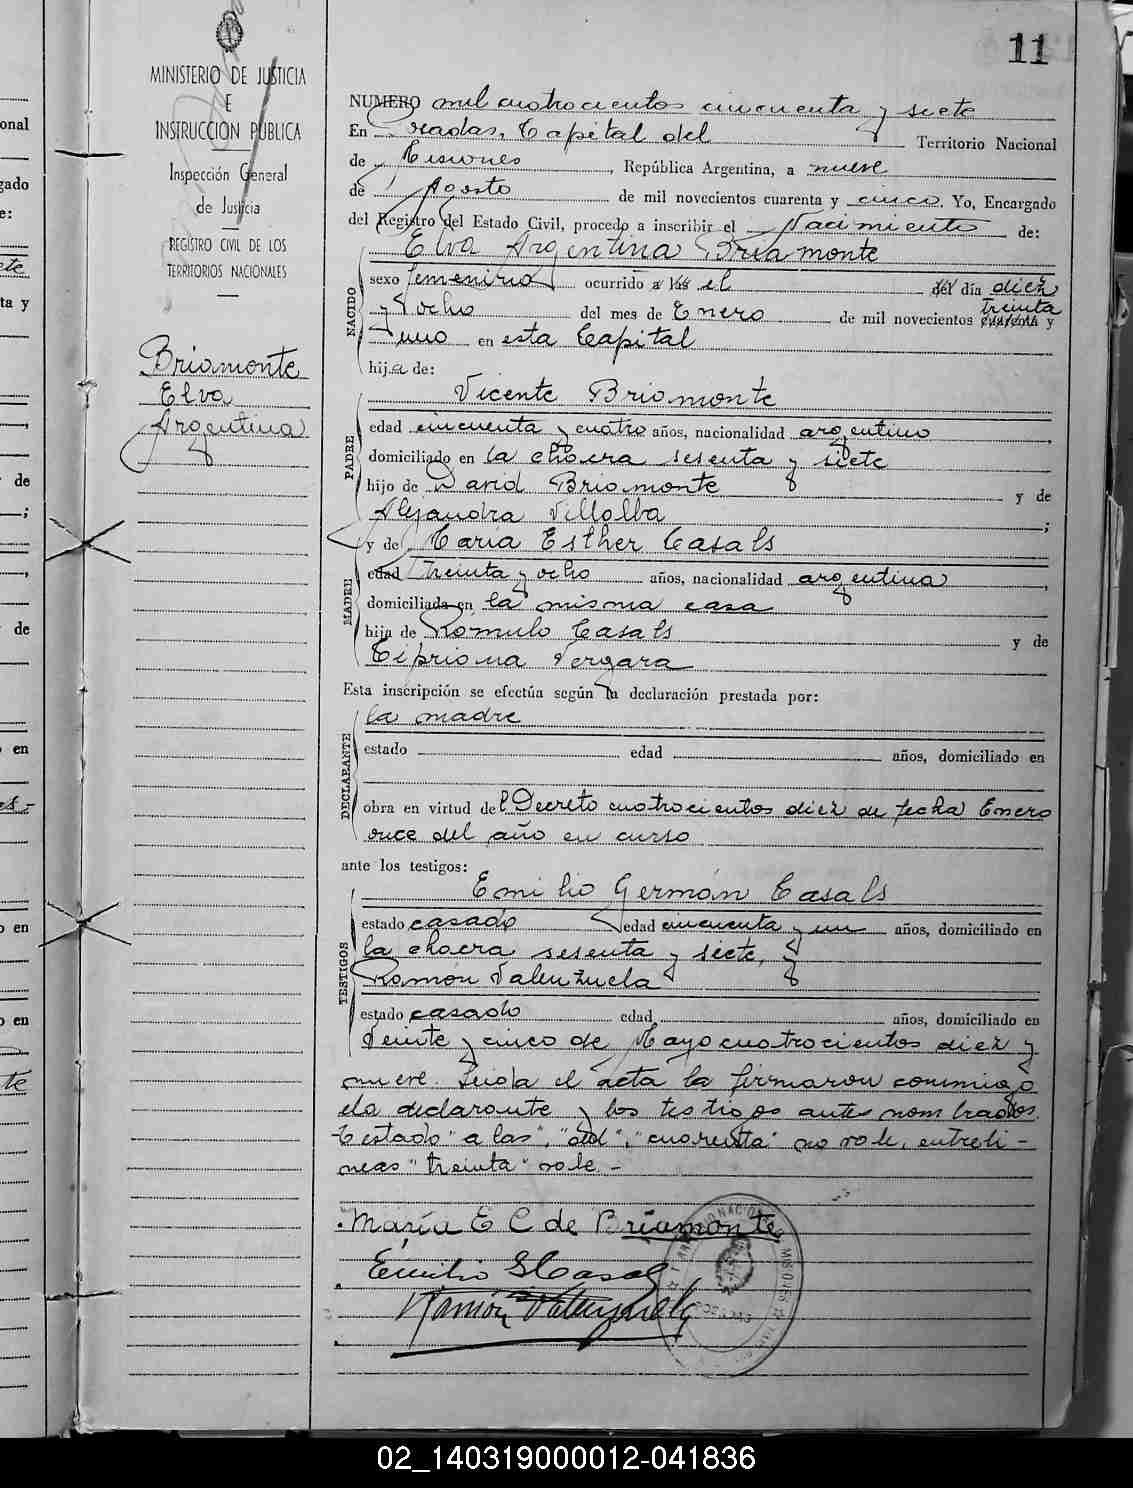 11
MINISTERIO DE JUSTICIA
E
INSTRUCCIÓN PÚBLICA
Inspección General
de Justicia
REGISTRO CIVIL DE LOS
TERRITORIOS NACIONALES
Briamonte
Elva
Argentina
NUMERO mil cuatrocientos cincuenta y siete
En Posadas, Capital del Territorio Nacional
de Misiones, República Argentina, a nueve
de Agosto de mil novecientos cuarenta y cinco. Yo, Encargado
del Registro del Estado Civil, procedo a inscribir el Nacimiento de:
NACIDO
Elva Argentina Briamonte
sexo femenino ocurrido a las el del día diez
y ocho del mes de Enero de mil novecientos cuarenta treinta y
uno en esta Capital
hija de:
PADRE
Vicente Briamonte
edad cincuenta y cuatro años, nacionalidad argentino
domiciliado en la chacra sesenta y siete
hijo de David Briamonte y de
Alejandra Villalba;
MADRE
y de María Esther Casals
edad treinta y ocho años, nacionalidad argentina,
domiciliada en la misma casa
hija de Rómulo Casals y de
Cipriana Vergara
Esta inscripción se efectúa según la declaración prestada por:
DECLARANTE
la madre
estado edad años, domiciliado en
obra en virtud del Decreto cuatrocientos diez de fecha Enero
once del año en curso
ante los testigos:
TESTIGOS
Emilio Germán Casals
estado casado edad cincuenta y un años, domiciliado en
la chacra sesenta y siete, y
Ramón Valenzuela
estado casado edad años, domiciliado en
Veinte y cinco de Mayo cuatrocientos diez y
nueve. Leida el acta la firmaron conmigo
la declarante y los testigos antes nombrados.
Testado "a las", "del", "cuarenta" no vale, entreli-
neas "treinta" vale.-
María E C de Briamonte
Emilio G Casals
Ramón Valenzuela
MISIONES
02_140319000012-041836